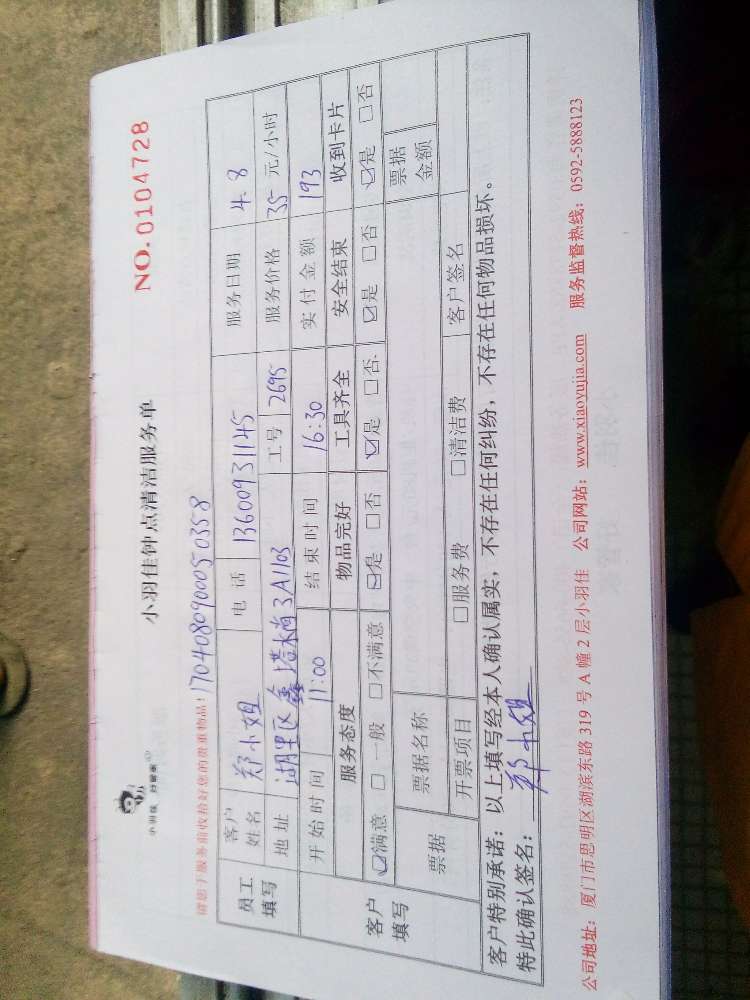 小羽佳 好管家
小羽佳钟点清洁服务单
NO.0104728
请您于服务前收拾好您的贵重物品!
170408090050358
员工填写
客户姓名 郑小姐 电话 13600931145 服务日期 4.8
地址 湖里区鑫塔水尚3A1103 工号 2695 服务价格 35 元/小时
客户填写
开始时间 11:00 结束时间 16:30 实付金额 193
服务态度 物品完好 工具齐全 安全结束 收到卡片
☑满意 □一般 □不满意 ☑是 □否 ☑是 □否 ☑是 □否 ☑是 □否
票据 票据名称 票据金额
开票项目 □服务费 □清洁费 客户签名
客户特别承诺:以上填写经本人确认属实,不存在任何纠纷,不存在任何物品损坏。
特此确认签名: 郑小姐
公司地址:厦门市思明区湖滨东路 319 号 A 幢 2 层小羽佳 公司网站:www.xiaoyujia.com 服务监督热线:0592-5888123